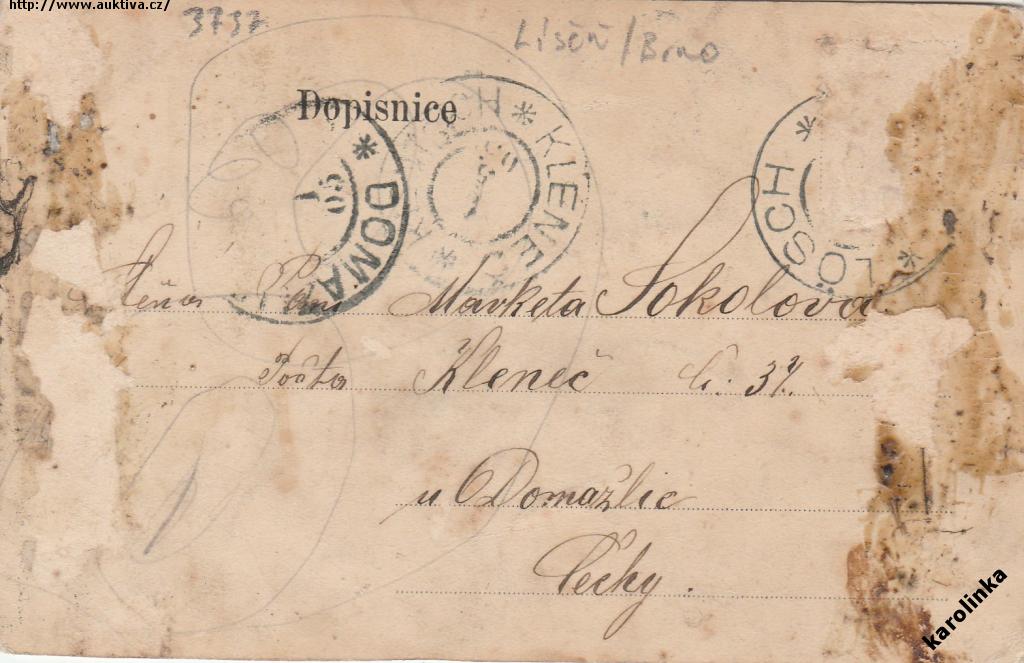 http://www.auktiva.cz/
3737
Líšeň/Brno
Dopisnice
* KLENEČ *
* DOMA
1 05
* LÖSCH *
Paní Marketa Sokolová
Pošta Kleneč č. 37.
u Domažlic
Čechy.
karolinka